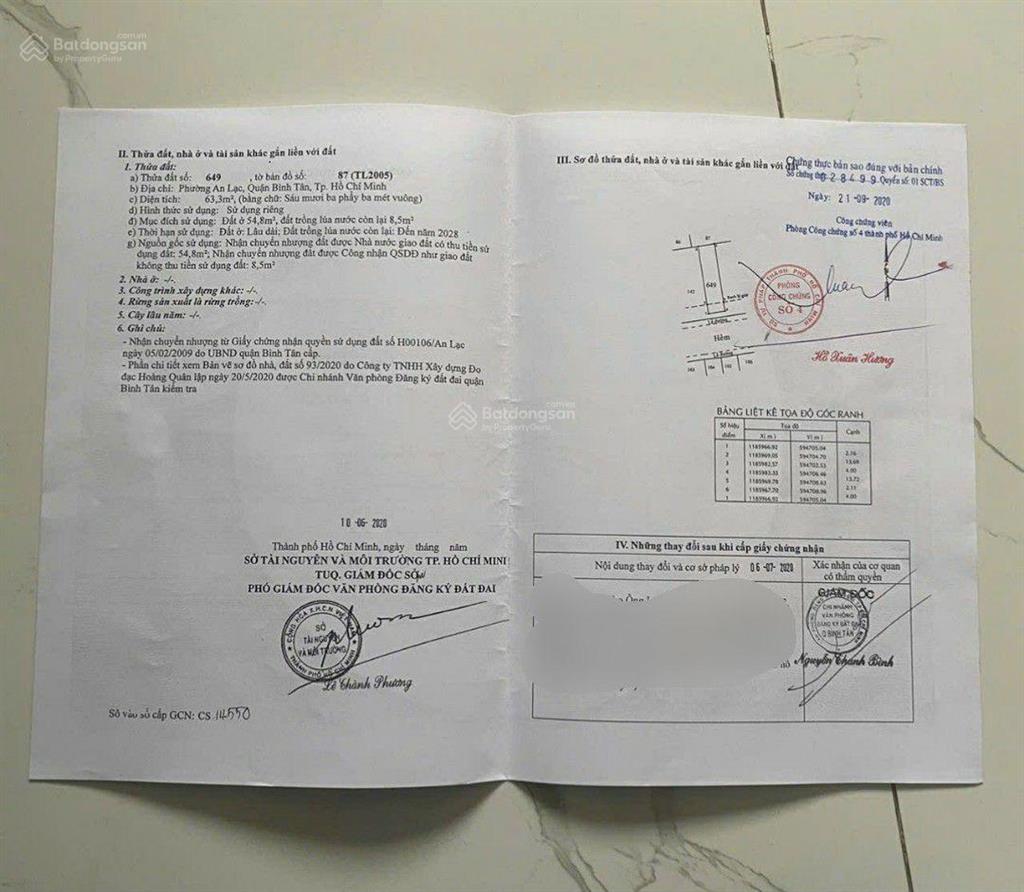 Batdongsan
.com.vn
by PropertyGuru
II. Thửa đất, nhà ở và tài sản khác gắn liền với đất
1. Thửa đất:
a) Thửa đất số: 649 , tờ bản đồ số: 87 (TL2005)
b) Địa chỉ: Phường An Lạc, Quận Bình Tân, Tp. Hồ Chí Minh
c) Diện tích: 63,3m², (bằng chữ: Sáu mươi ba phẩy ba mét vuông)
d) Hình thức sử dụng: Sử dụng riêng
đ) Mục đích sử dụng: Đất ở 54,8m², đất trồng lúa nước còn lại 8,5m²
e) Thời hạn sử dụng: Đất ở: Lâu dài; Đất trồng lúa nước còn lại: Đến năm 2028
g) Nguồn gốc sử dụng: Nhận chuyển nhượng đất được Nhà nước giao đất có thu tiền sử
dụng đất: 54,8m²; Nhận chuyển nhượng đất được Công nhận QSDĐ như giao đất
không thu tiền sử dụng đất: 8,5m²
2. Nhà ở: -/-.
3. Công trình xây dựng khác: -/-.
4. Rừng sản xuất là rừng trồng:-/-.
5. Cây lâu năm: -/-.
6. Ghi chú:
- Nhận chuyển nhượng từ Giấy chứng nhận quyền sử dụng đất số H00106/An Lạc
ngày 05/02/2009 do UBND quận Bình Tân cấp.
- Phần chi tiết xem Bản vẽ sơ đồ nhà, đất số 93/2020 do Công ty TNHH Xây dựng Đo
đạc Hoàng Quân lập ngày 20/5/2020 được Chi nhánh Văn phòng Đăng ký đất đai quận
Bình Tân kiểm tra
10 -06- 2020
Thành phố Hồ Chí Minh, ngày tháng năm
SỞ TÀI NGUYÊN VÀ MÔI TRƯỜNG TP. HỒ CHÍ MINH
TUQ. GIÁM ĐỐC SỞ
PHÓ GIÁM ĐỐC VĂN PHÒNG ĐĂNG KÝ ĐẤT ĐAI
CỘNG HÒA X.H.C.N VIỆT NAM
SỞ
TÀI NGUYÊN
VÀ MÔI TRƯỜNG
THÀNH PHỐ HỒ CHÍ MINH
Lê Thành Phương
Số vào sổ cấp GCN: CS 14550
III. Sơ đồ thửa đất, nhà ở và tài sản khác gắn liền với đất
Chứng thực bản sao đúng với bản chính
Số chứng thực 028499 Quyển số: 01 SCT/BS
Ngày: 21-09-2020
Công chứng viên
Phòng Công chứng số 4 thành phố Hồ Chí Minh
PHÒNG
CÔNG CHỨNG
SỐ 4
Hồ Xuân Hương
87
649
Hẻm
BẢNG LIỆT KÊ TỌA ĐỘ GÓC RANH
Số hiệu điểm Tọa độ Cạnh
X( m ) Y( m )
1 1185966.92 594705.04
2.16
2 1185969.05 594704.70
13.69
3 1185982.57 594702.53
4.00
4 1185983.33 594706.46
13.72
5 1185969.78 594708.63
2.11
6 1185967.70 594708.96
4.00
1 1185966.92 594705.04
IV. Những thay đổi sau khi cấp giấy chứng nhận
Nội dung thay đổi và cơ sở pháp lý 06-07-2020
Xác nhận của cơ quan
có thẩm quyền
GIÁM ĐỐC
CHI NHÁNH
VĂN PHÒNG
ĐĂNG KÝ ĐẤT ĐAI
Q.BÌNH TÂN
Nguyễn Thanh Bình
Batdongsan
.com.vn
by PropertyGuru